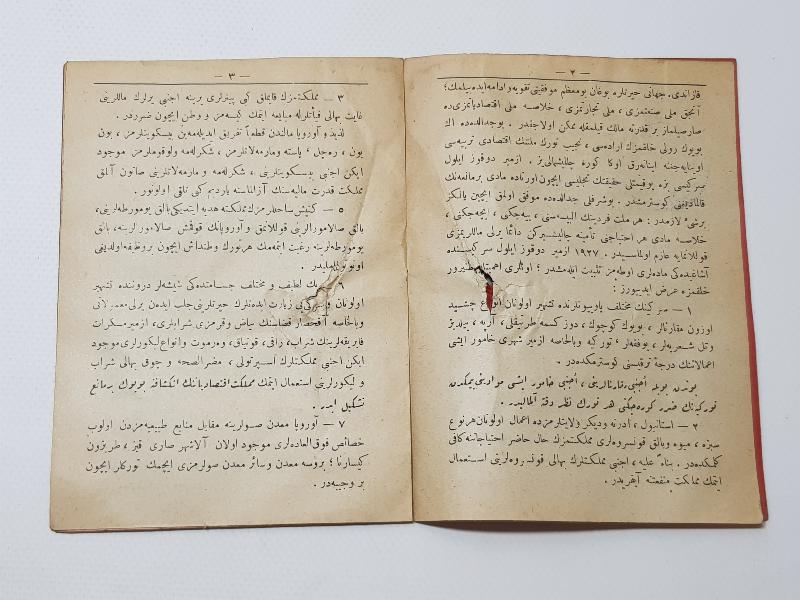 — ٢ —
قازاندی. جهانی حیرتلره بوغان بومعظم موفقیتی تقویه و ادامه ایده‌بیلمك؛
آنجق ملی صنعتمزی، ملی تجارتمزی، خلاصه ملی اقتصادیاتمزی ده
صارصیلماز بر قدرته مالك قیلمقله ممكن اولاجقدر. بوجدالده‌ده اك
بویوك رولی خلقمزك اراده‌سی، نجیب تورك ملتنك اقتصادی تربیه‌سی
اوینایه‌جغنه اینانه‌رق اوكا كوره چالیشمالی‌یز. ازمیر دوقوز ایلول
سركیسی بزه بوقیمتلی حقیقتك تجلیسی ایچون اورتاده مادی بر مانعه‌نك
قالمادیغنی كوسترمشدر. بوشرفلی جدالده‌ده موفق اولمق ایچین یالكز
برشی لازمدر: هر ملت فردینك البیسه‌سنی، ییه‌جكی، ایچه‌جكی،
خلاصه مادی هر احتیاجنی تأمینه چالیشیركن دائما یرلی ماللریمزی
قوللانمایه عازم اولماسیدر. ١٩٢٧ ازمیر دوقوز ایلول سركیسنده
آشاغیده‌كی ماده‌لری اوطه‌مز تثبیت ایله‌مشدر؛ اونلری اهمیتله
خلقمزه عرض ایدییورز:
١ — سركینك مختلف پاویونلرنده تشهیر اولونان انواع چشید
اوزون مقارنالر، بویوك كوچوك، دوز كسمه طرتیقلی، آرپه، ییلدیز
وتل شعریه‌لر، یوفقه‌لر، توركیه وبالخاصه ازمیر شهری خامور ایشی
اعمالاتنك درجهٔ ترقیسنی كوسترمكده‌در.
بوندن بویله اجنبی مقارنالرینی، اجنبی خامور ایشی موادینی ییمكدن
توركیه‌نك ضرر كوره‌جكنی هر تورك نظر دقته آلمالیدر.
٢ — استانبول، ادرنه ودیكر ولایتلرمزده اعمال اولونان هرنوع
سبزه، میوه وبالق قونسروه‌لری مملكتمزك حال حاضر احتیاجاتنه كافی
كلمكده‌در. بناءً علیه، اجنبی مملكتلرك بهالی قونسروه‌لرینی استعمال
ایتمك مملكت منفعتنه آیقیریدر.
— ٣ —
٣ — مملكتمزك قایماق كبی پینیرلری یرینه اجنبی یرلرك ماللرینی
غایت بهالی فیأتلرله مبایعه ایتمك كیسه‌مز و وطن ایچون ضرردر.
لذیذ و آوروپا مالندن قطعاً تفریق ایدیله‌مه‌ین بیسكویتلرمز، بون
بون، ره‌چل، پاسته ومارمه‌لاتلرمز، شكرله‌مه ولوقوملرمز موجود
ایكن اجنبی بیسكویتلرینی، شكرله‌مه و مارمه‌لاتلرینی صاتون آلمق
مملكت قدرت مالیه‌سنك آزالماسنه یاردیم كبی تلقی اولونور.
٥ — كنیش ساحللرمزك مملكته هدیه ایتدیكی بالق یومورطه‌لرینی،
بالق صالامورالرینی قوللانمق و آوروپانك قوقمش صالامورلرینه، بالق
یومورطه‌لرینه رغبت ایتمه‌مك هرتورك وطنداش ایچون بروظیفه اولدیغی
اونوتولمامالیدر.
٦ — پك لطیف و مختلف جسامتده‌كی شیشه‌لر دروننده تشهیر
اولونان وسركی‌یی زیارت ایده‌نلرك حیرتلرینی جلب ایده‌ن یرلی معمولاتی
وبالخاصه قضاسنك بیاض وقرمزی شرابلری، ازمیر مسكرات
فابریقه‌لرینك شراب، راقی، قونیاق، وه‌رموت وانواع لیكورلری موجود
ایكن اجنبی مملكتلرك اسپرتولی، مضرالصحه و چوق بهالی شراب
و لیكورلرینی استعمال ایتمك مملكت اقتصادیاتنك انكشافنه بویوك برمانع
تشكیل ایدر.
٧ — آوروپا معدن صولرینه مقابل منابع طبیعیه‌مزدن اولوب
خصائص فوق‌العاده‌لری موجود اولان آلاشهر صاری قیز، طربزون
كیسارنا؛ بروسه معدن وسائر معدن صولرمزی ایچمك توركلر ایچون
بر وجیبه‌در.